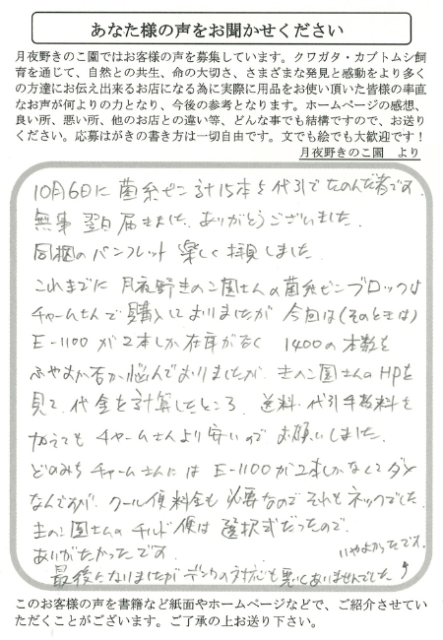 あなた様の声をお聞かせください
月夜野きのこ園ではお客様の声を募集しています。クワガタ・カブトムシ飼
育を通じて、自然との共生、命の大切さ、さまざまな発見と感動をより多く
の方達にお伝え出来るお店になる為に実際に用品をお使い頂いた皆様の率直
なお声が何よりの力となり、今後の参考となります。ホームページの感想、
良い所、悪い所、他のお店との違い等、どんな事でも結構ですので、お送り
ください。応募はがきの書き方は一切自由です。文でも絵でも大歓迎です！
月夜野きのこ園 より
10月6日に 菌糸ビン 計15本を代引でたのんだ者です。
無事 翌日 届きました。ありがとうございました。
同梱のパンフレット 楽しく拝見しました。
これまでに 月夜野きのこ園さんの菌糸ビンブロックは
チャームさんで購入しておりましたが 今回は（そのときは）
E-1100 が2本しか在庫がなく 1400の本数を
ふやすか否か悩んでおりましたが、きのこ園さんのHPを
見て、代金を計算したところ、送料・代引手数料を
加えても チャームさんより安いので お願いしました。
どのみち チャームさんには E-1100が2本しかなくてダメ
なんですが、クール便料金も必要なのでそれもネックでした。
きのこ園さんのチルド便は 選択式だったので、
ありがたかったです。
最後になりましたが デンワの対応も悪くありませんでした
いやよかったです
このお客様の声を書籍など紙面やホームページなどで、ご紹介させてい
ただくことがございます。ご了承の上お送り下さい。